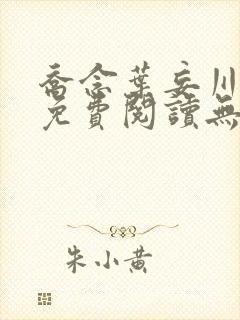 喬念葉妄川
免費閱讀無
朱小黄